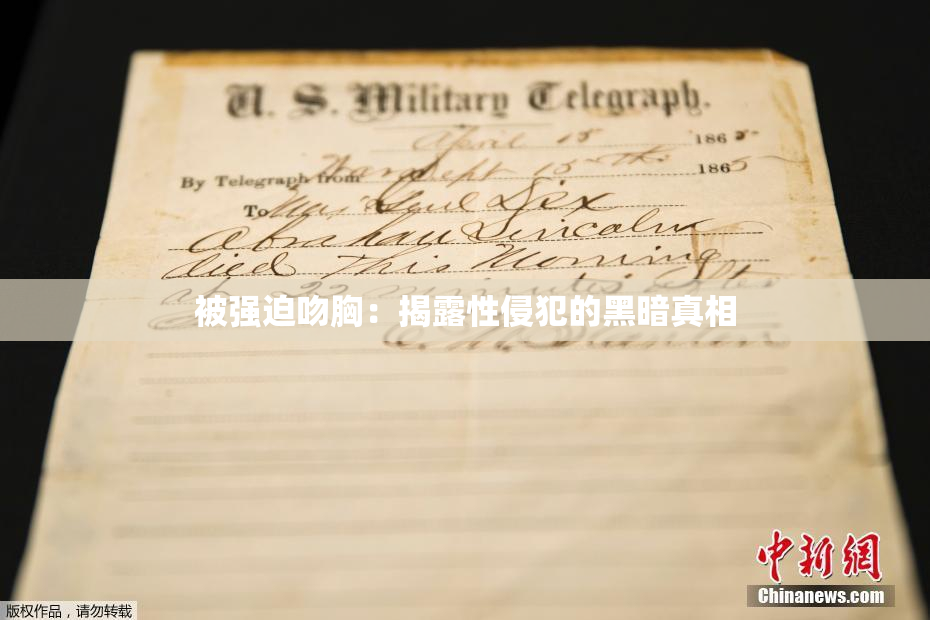 U. S. Military Telegraph.
April 15 1865
By Telegraph from War Dept 15th 1865
To Maj Genl Dix
Abraham Lincoln
died This Morning
at 22 minutes after
被强迫吻胸：揭露性侵犯的黑暗真相
E. M. Stanton
中新网
Chinanews.com
版权作品，请勿转载